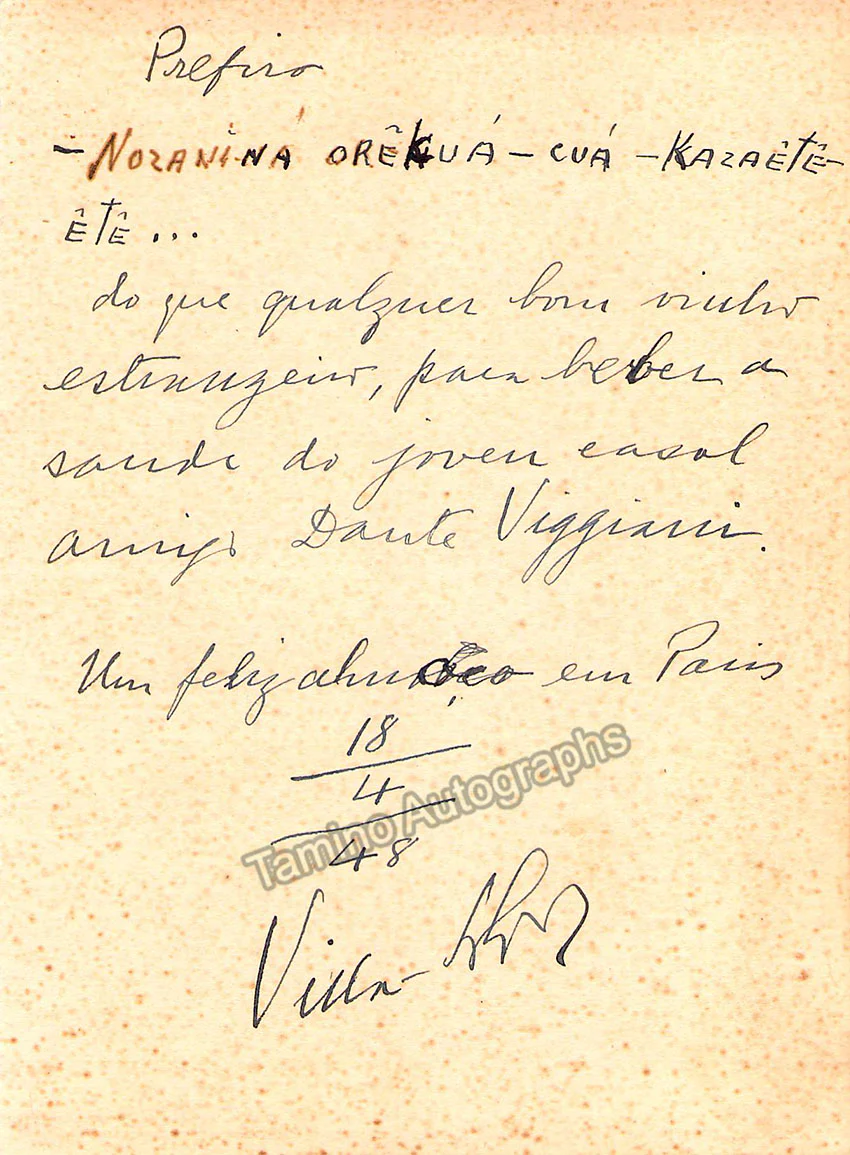 Prefiro
– NOZANI-NÁ ORÊKUÁ – CUÁ – KAZAÊTÊ –
ÊTÊ ...
do que qualquer bom vinho
estrangeiro, para beber a
saude do joven casal
amigo Dante Viggiani.
Um feliz almoço em Paris
18
4
48
Tamino Autographs
Villa-Lobos